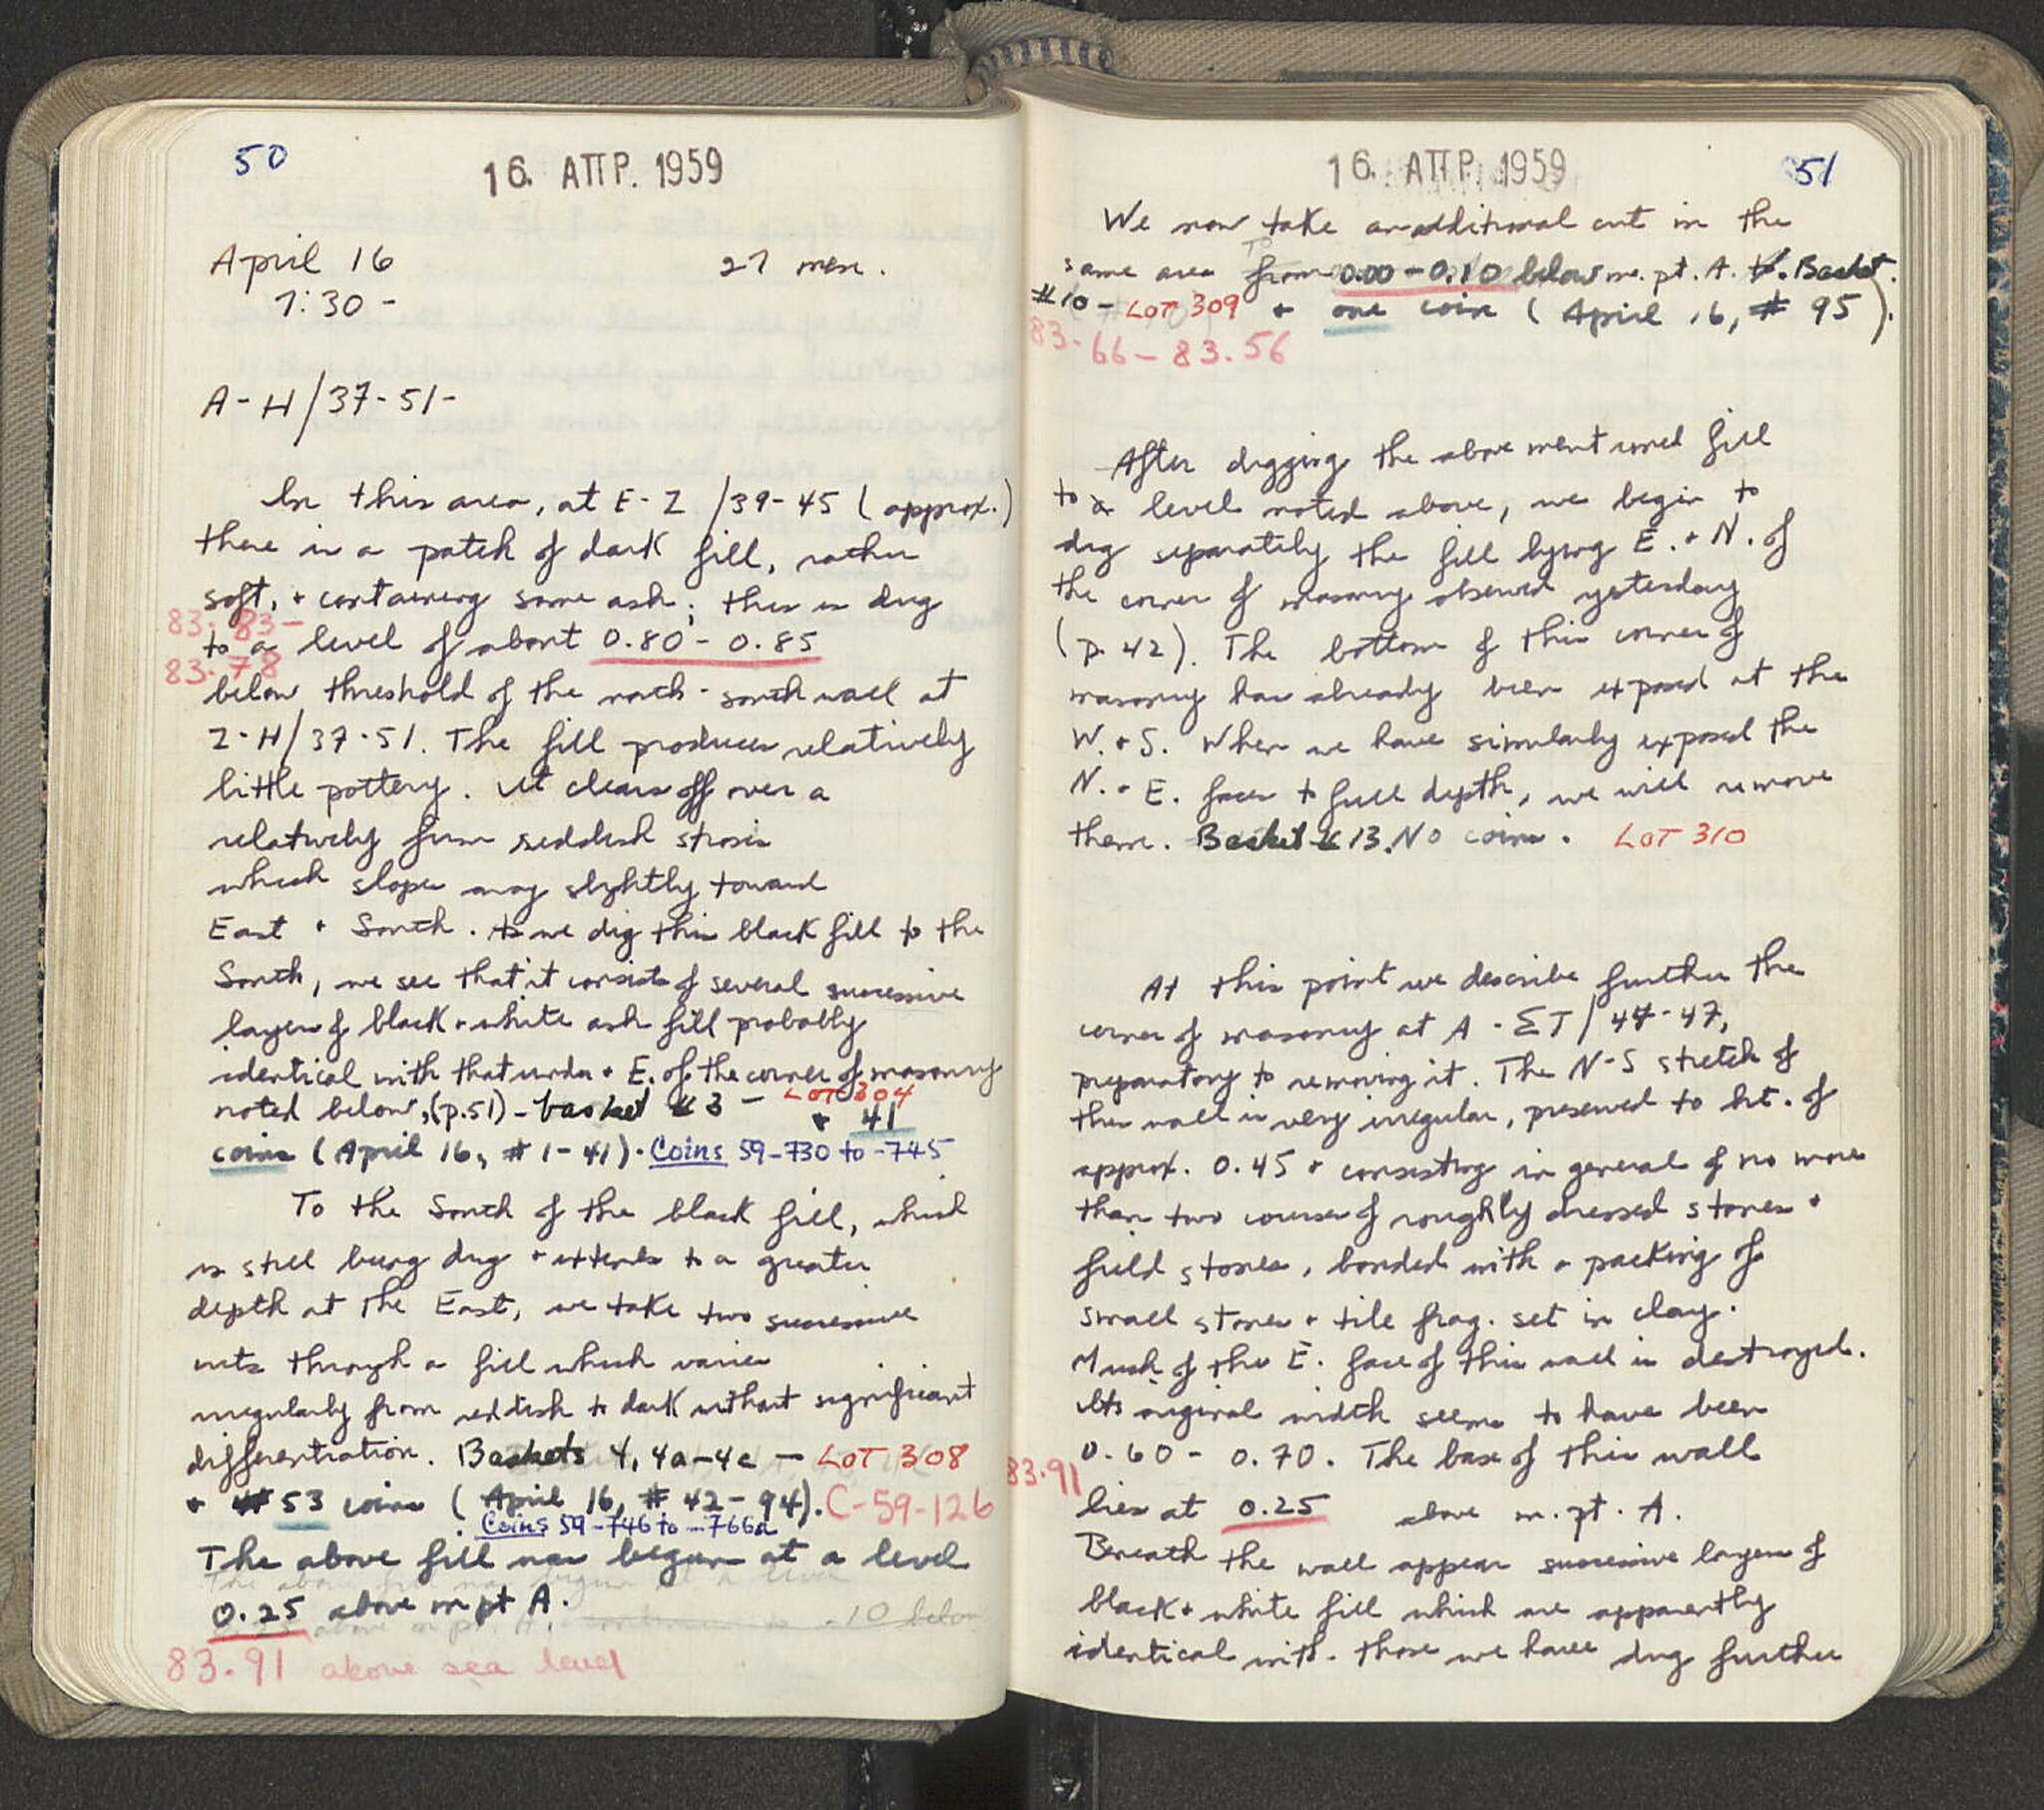 50
16. ΑΠΡ. 1959
April 16 27 men.
7:30 -
A-H/37-51-
In this area, at E-Z/39-45 (approx.)
there is a patch of dark fill, rather
soft, + containing some ash; this is dug
83.83-
to a level of about 0.80 - 0.85
83.78
below threshold of the north-south wall at
Z-H/37-51. The fill produces relatively
little pottery. It clears off over a
relatively firm reddish strosis
which slopes away slightly toward
East + South. As we dig this black fill to the
South, we see that it consists of several successive
layers of black + white ash fill probably
identical with that under + E. of the corner of masonry
noted below, (p.51) - basket # 3 - LOT 304
+ 41
coins (April 16, # 1-41). Coins 59-730 to -745
To the South of the black fill, which
is still being dug + extends to a greater
depth at the East, we take two successive
cuts through a fill which varies
irregularly from reddish to dark without significant
differentiation. Baskets 4, 4a-4c - LOT 308
+ 53 coins (April 16, # 42-94). C-59-126
Coins 59-746 to -766a
The above fill was begun at a level
0.25 above m pt A.
83.91 above sea level
16. ΑΠΡ. 1959 51
We now take an additional cut in the
same area from 0.00 - 0.10 below m. pt. A. Basket
#10 - LOT 309 + one coin (April 16, # 95).
83.66 - 83.56
After digging the above mentioned fill
to a level noted above, we begin to
dig separately the fill lying E. + N. of
the corner of masonry observed yesterday
(p. 42). The bottom of this corner of
masonry has already been exposed at the
W. + S. When we have similarly exposed the
N. + E. faces to full depth, we will remove
them. Basket # 13. No coins. LOT 310
At this point we describe further the
corner of masonry at A - ΣT/44-47,
preparatory to removing it. The N-S stretch of
this wall is very irregular, preserved to ht. of
approx. 0.45 + consisting in general of no more
than two courses of roughly dressed stones +
field stones, bonded with a packing of
small stones + tile frag. set in clay.
Much of the E. face of this wall is destroyed.
Its original width seems to have been
0.60 - 0.70. The base of this wall
83.91
lies at 0.25 above m. pt. A.
Beneath the wall appear successive layers of
black + white fill which are apparently
identical with those we have dug further